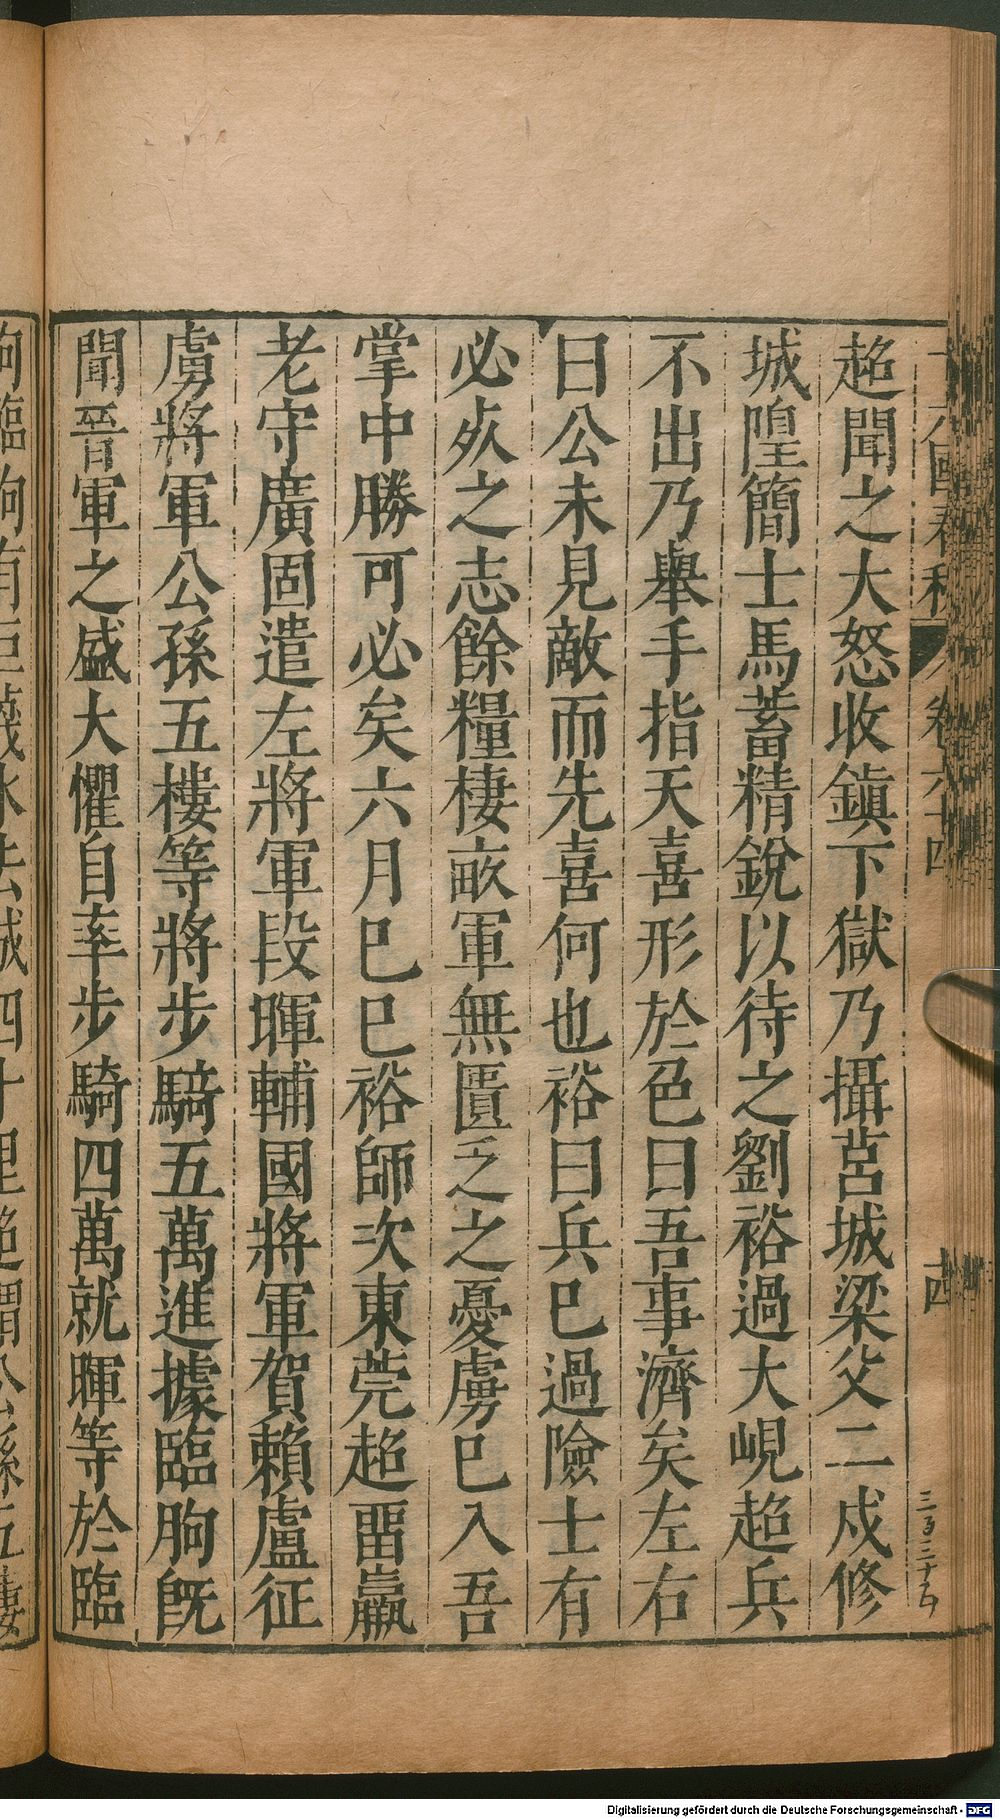 十六國春秋 卷六十四 十四
三百三十五
超聞之大怒收鎮下獄乃攝莒城梁父二戍修
城隍簡士馬蓄精銳以待之劉裕過大峴超兵
不出乃舉手指天喜形於色曰吾事濟矣左右
曰公未見敵而先喜何也裕曰兵巳過險士有
必死之志餘糧棲畝軍無匱乏之憂虜巳入吾
掌中勝可必矣六月巳巳裕師次東莞超畱羸
老守廣固遣左將軍段暉輔國將軍賀賴盧征
虜將軍公孫五樓等將步騎五萬進據臨朐旣
聞晉軍之盛大懼自率步騎四萬就暉等於臨
朐臨朐南巨蔑水去城四十里超謂公孫五樓
Digitalisierung gefördert durch die Deutsche Forschungsgemeinschaft - DFG